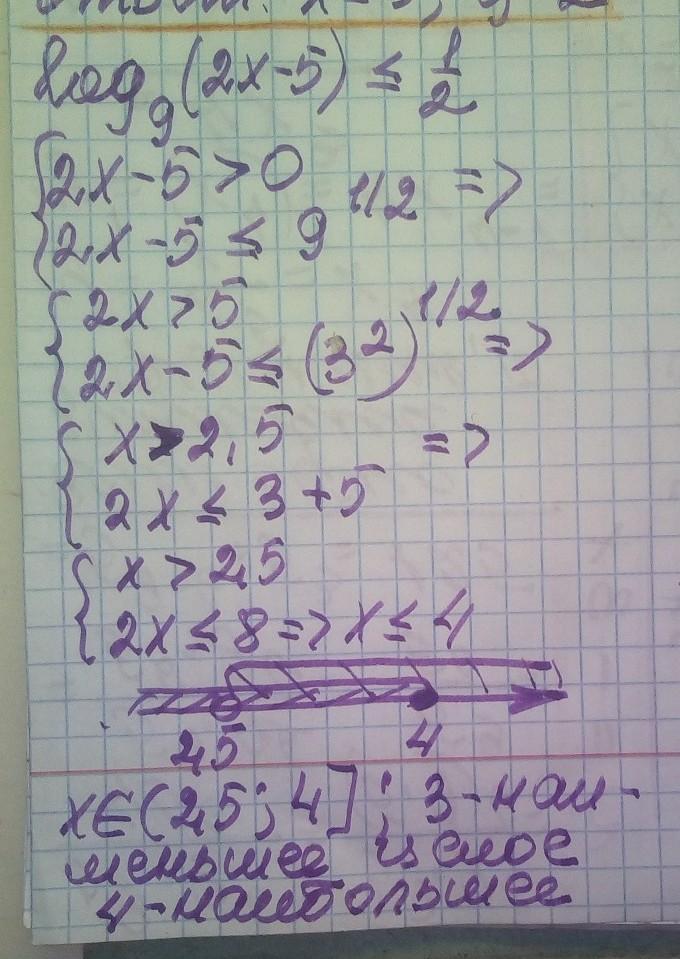 log₉(2x-5) ≤ 1/2
{2x-5>0
{2x-5 ≤ 9^1/2 =>
{2x>5
{2x-5≤(3²)^1/2 =>
{x>2,5 =>
{2x≤3+5
{x>2,5
{2x≤8=>x≤4
2,5 4
x∈(2,5; 4]; 3-наи-
меньшее целое
4-наибольшее